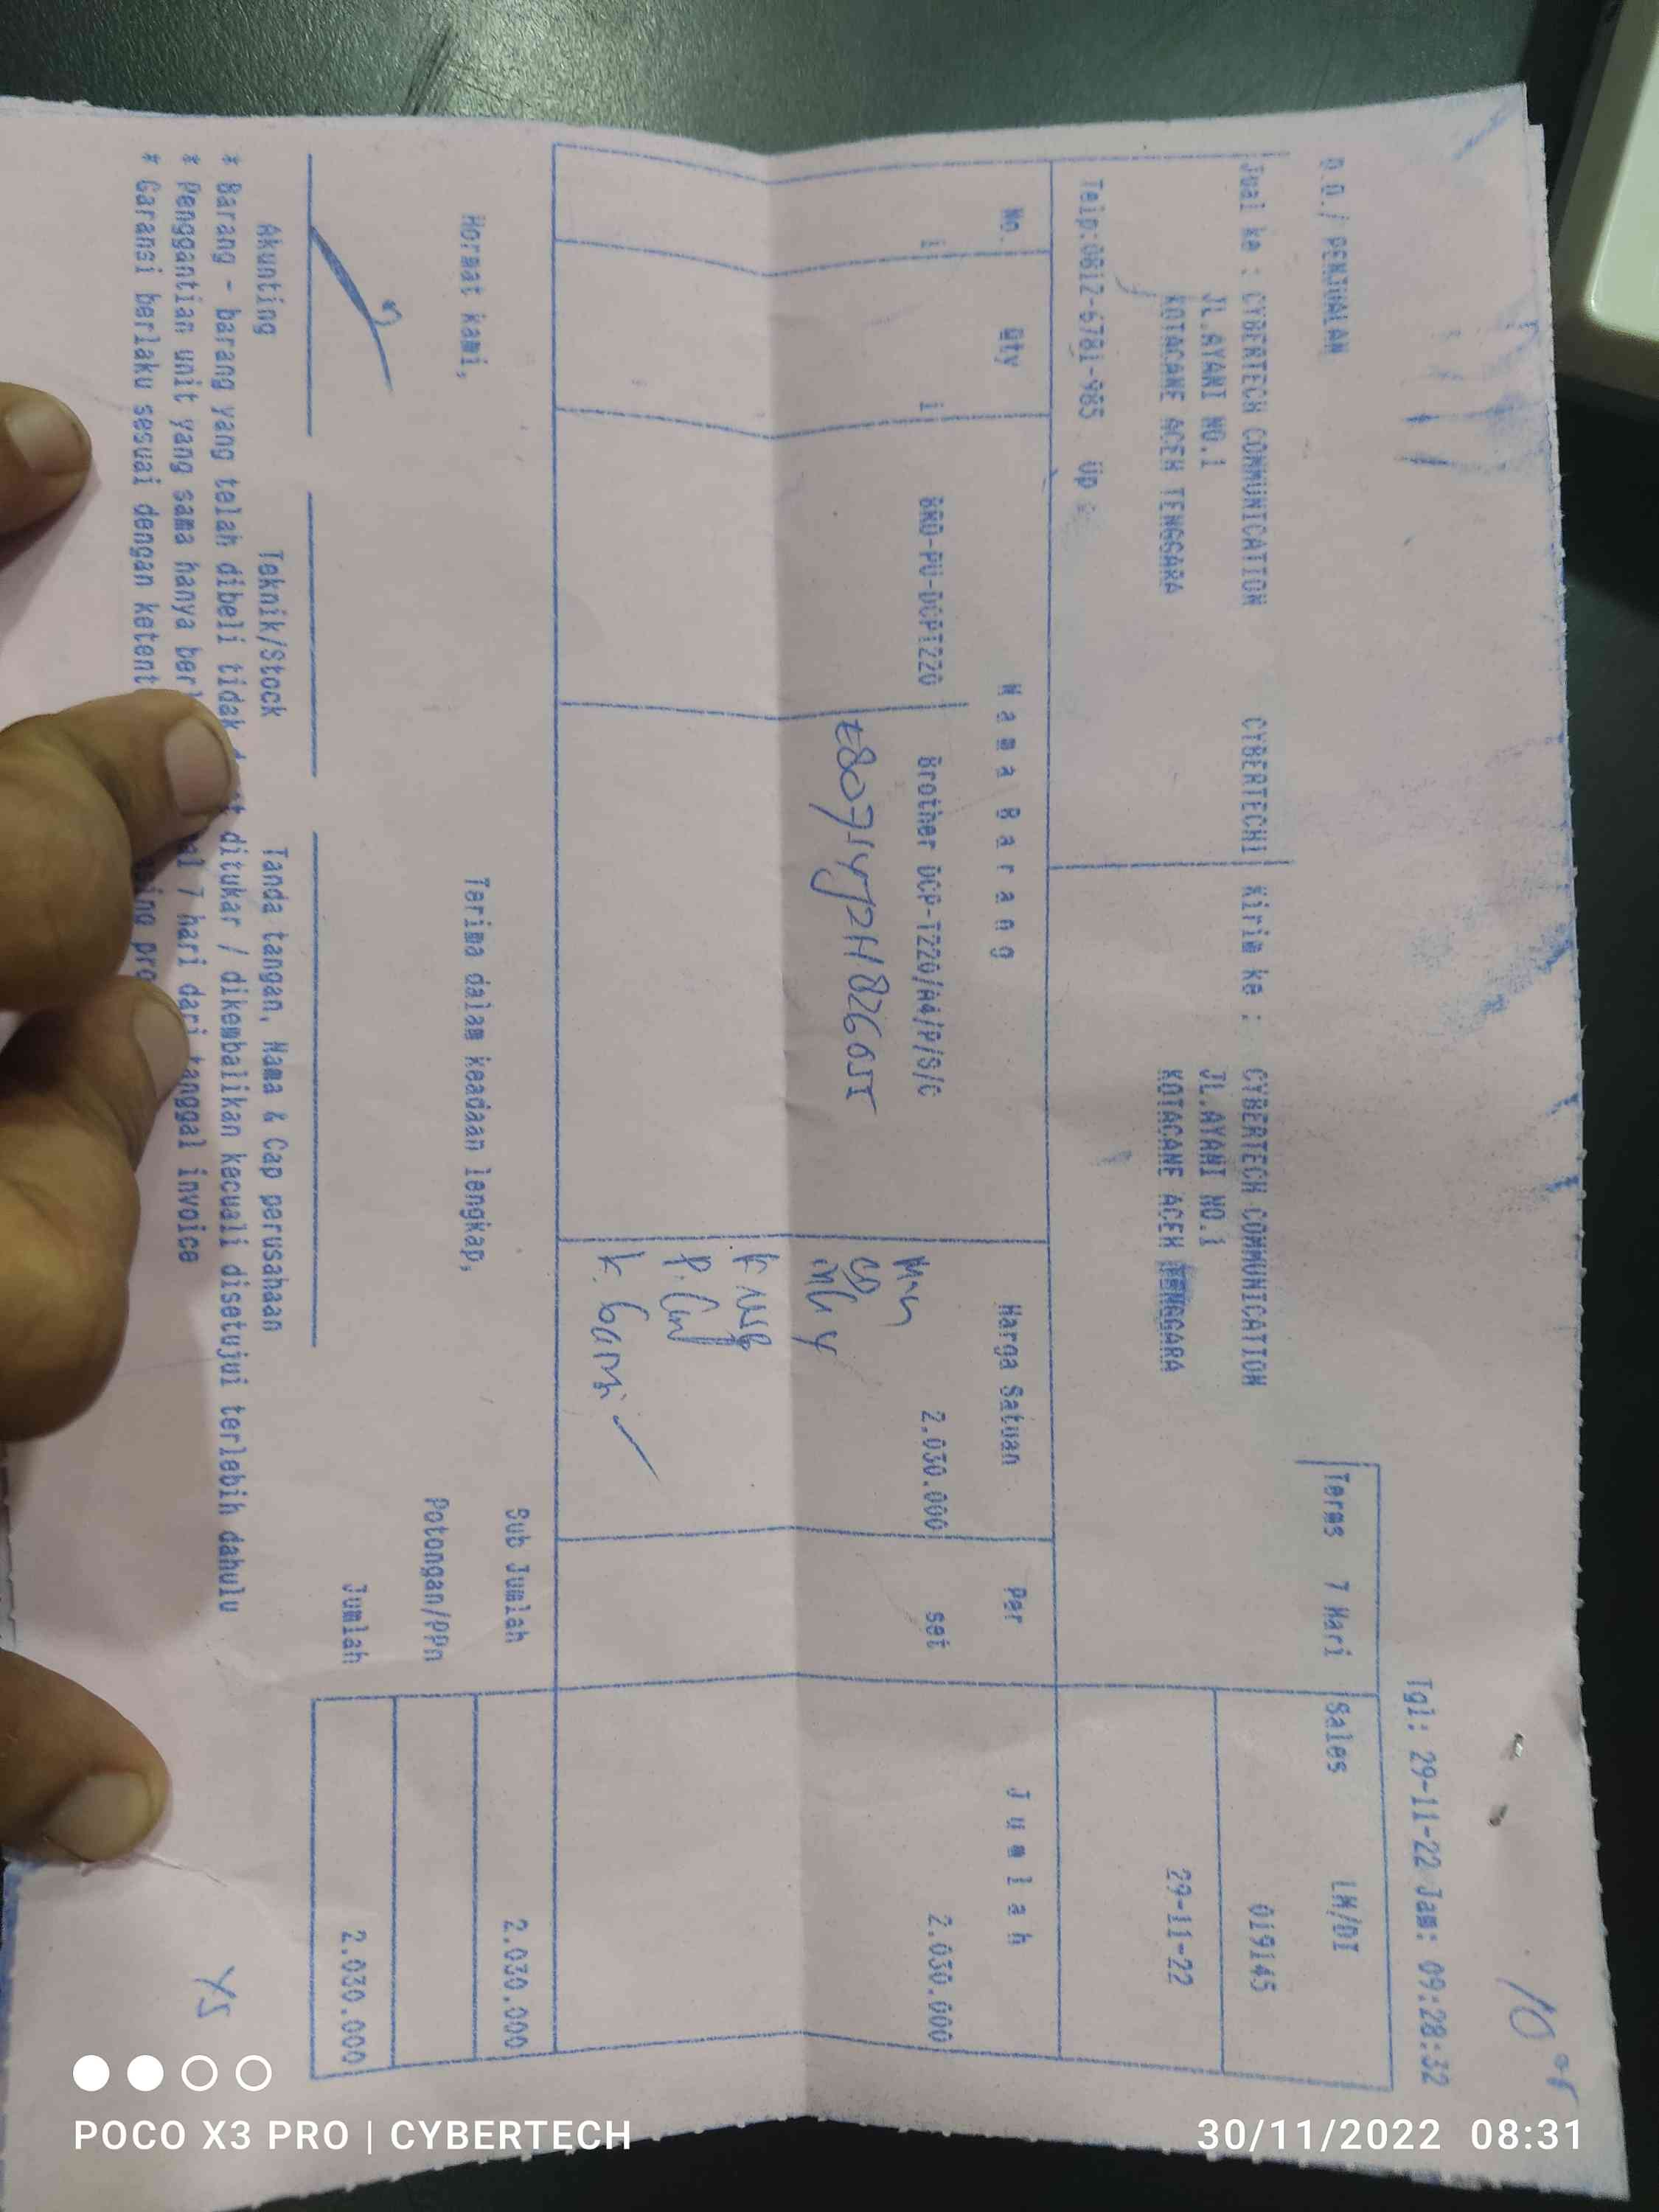 Tgl: 29-11-22 Jam: 09:28:32
D.O./ PENJUALAN
Terms 7 Hari Sales LM/DI
Jual ke : CYBERTECH COMMUNICATION CYBERTECH1 Kirim ke : CYBERTECH COMMUNICATION 019145
JL.AYANI NO.1 JL.AYANI NO.1
KOTACANE ACEH TENGGARA KOTACANE ACEH TENGGARA 29-11-22
Telp:0812-6781-985 Up :
No. Qty Nama Barang Harga Satuan Per Jumlah
1 1 BRO-PU-DCPT220 Brother DCP-T220/A4/P/S/C 2.030.000 set 2.030.000
Hormat kami, Terima dalam keadaan lengkap, Sub Jumlah 2.030.000
Potongan/PPn
Jumlah 2.030.000
Akunting Teknik/Stock Tanda tangan, Nama & Cap perusahaan
* Barang - barang yang telah dibeli tidak ditukar / dikembalikan kecuali disetujui terlebih dahulu
* Penggantian unit yang sama hanya 7 hari dari tanggal invoice
* Garansi berlaku sesuai dengan
POCO X3 PRO | CYBERTECH
30/11/2022 08:31